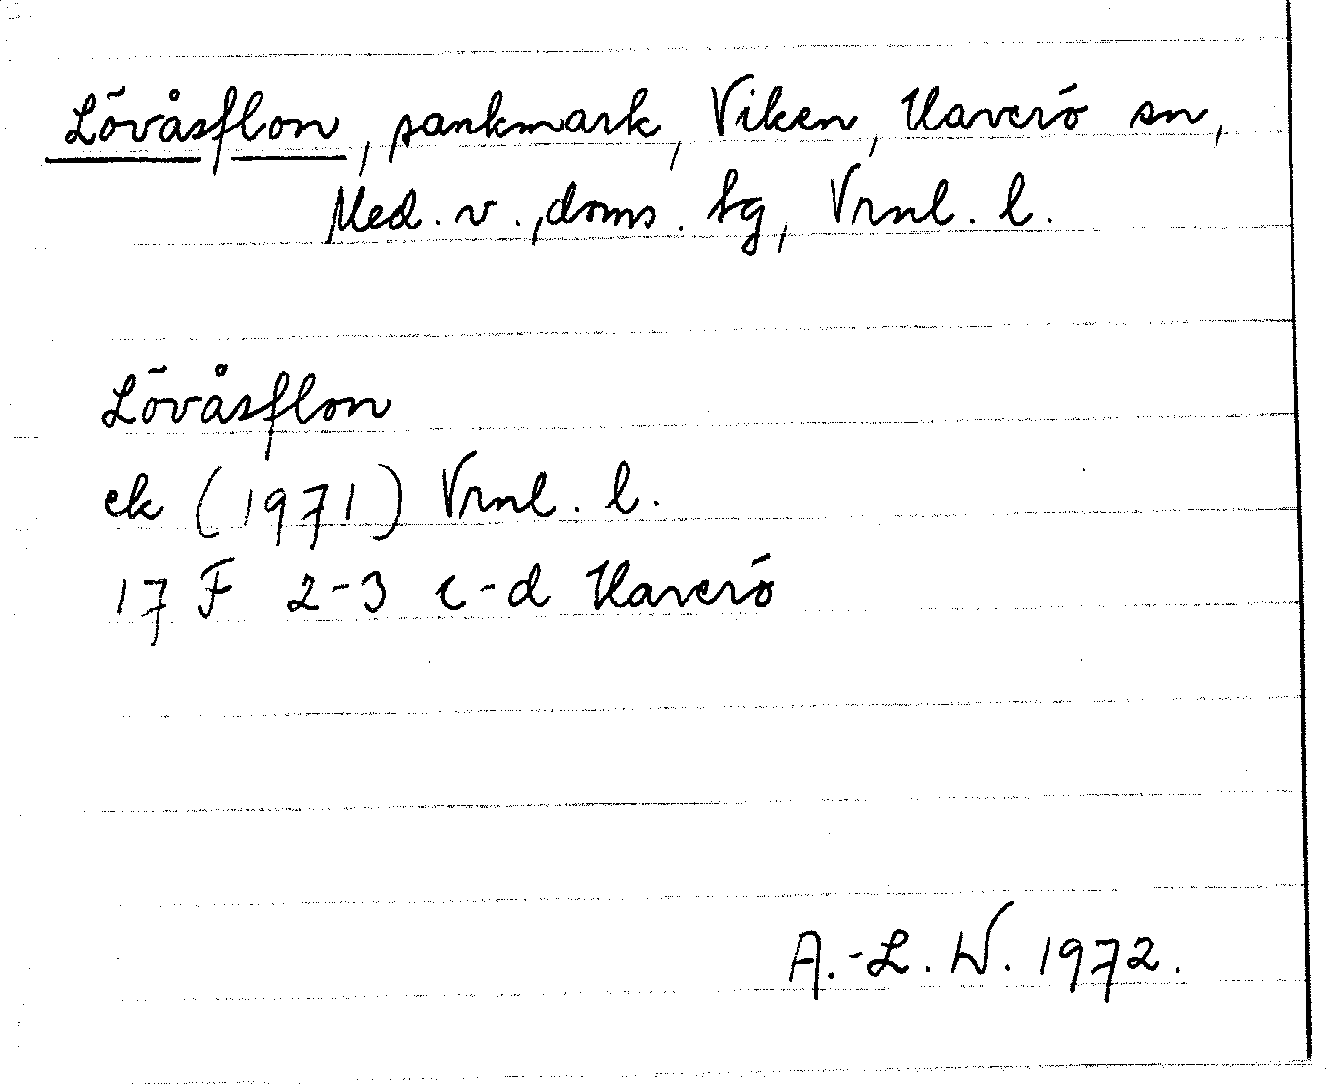 Lövåsflon, sankmark, Viken, Haverö sn,
Med. v., doms. tg, Vrnl. l.
Lövåsflon
ek (1971) Vrnl. l.
17 F 2-3 c-d Haverö
A.-L. W. 1972.